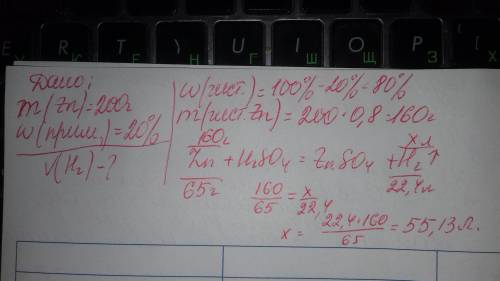 E R T Y U I O P
К Е Н Г Ш Щ З
Дано:
m(Zn)=200г
w(прим.)=20%
V(H₂)-?
w(чист.)=100%-20%=80%
m(чист. Zn)=200·0,8=160г
160г x л
Zn + H₂SO₄ = ZnSO₄ + H₂↑
65г 22,4л
160/65 = x/22,4
x = 22,4·160/65 = 55,13 л.